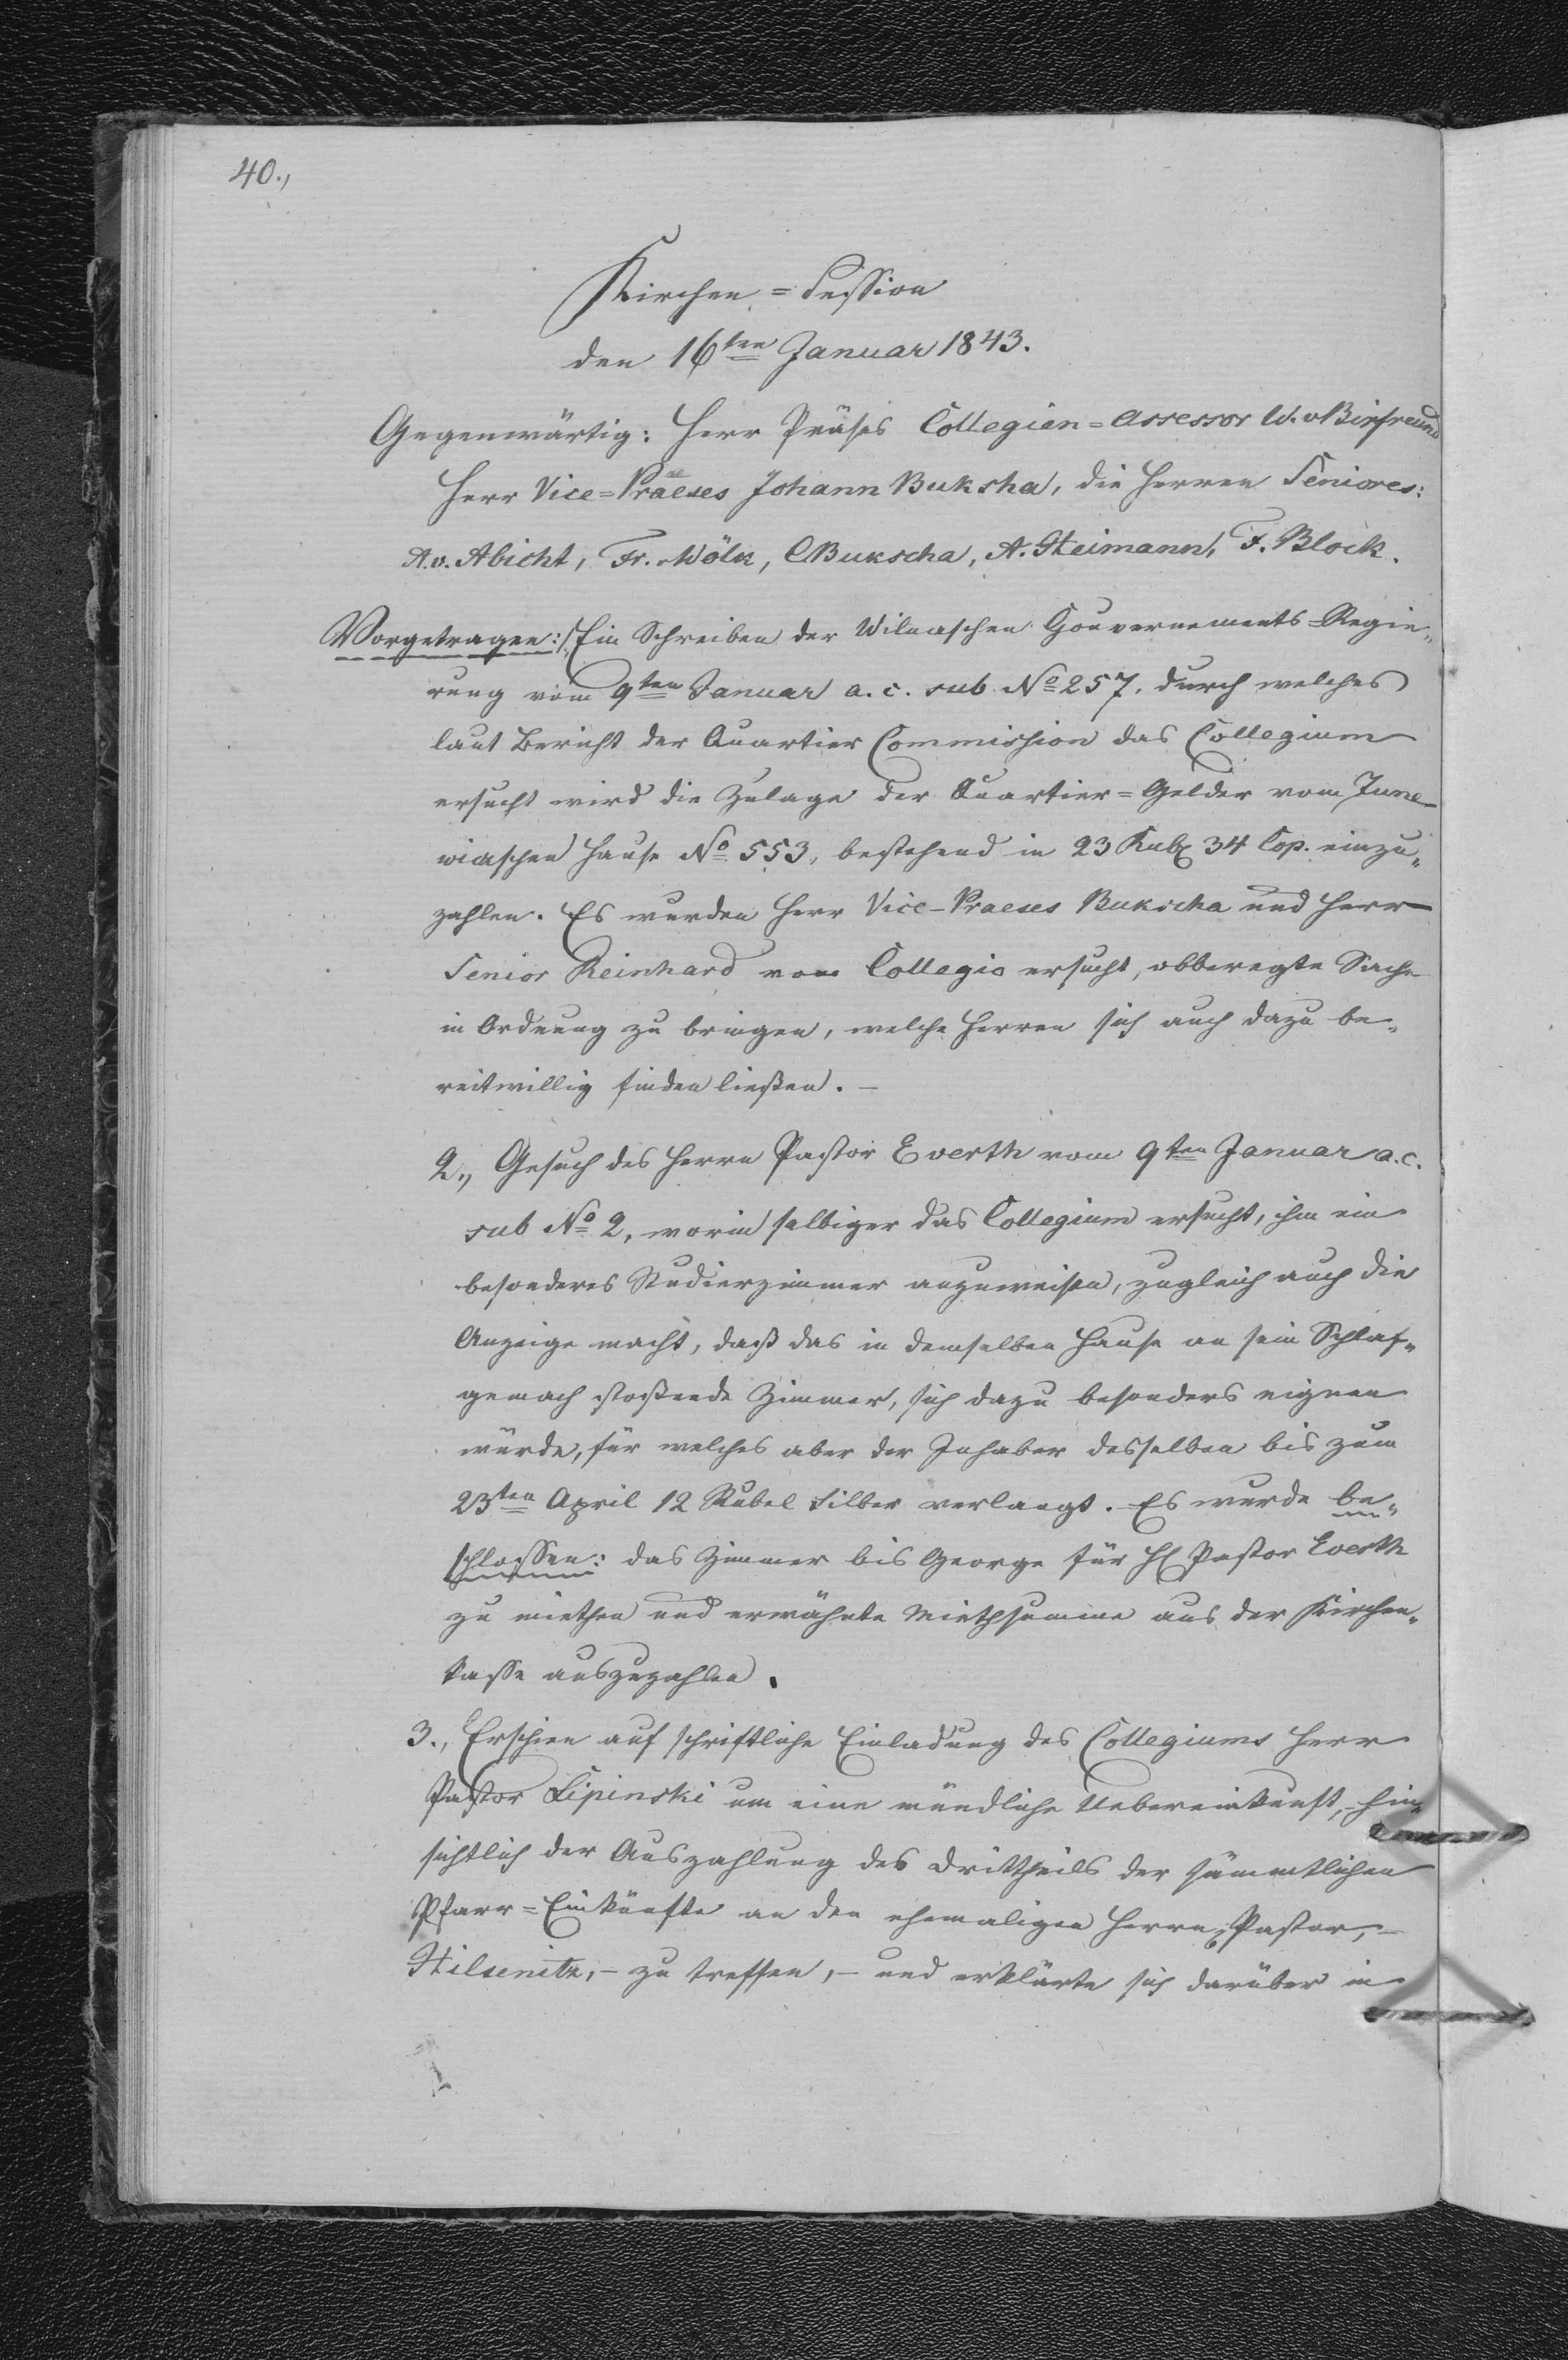 40.,
Kirchen=Session
den 16ten Januar 1843.
Gegenwärtig: Herr Präses Collegien=Assessor W. v Birfreund
Herr Vice=Praeses Johann Buksha, die Herren Seniores:
A. v. Abicht, Fr. Wölk, C Bukscha, A. Steimann, F. Block.
Vorgetragen: 1., Ein Schreiben der Wilnaschen Gouvernements=Regie„
rung vom 9ten Januar a. c. sub No 257, durch welches
laut Bericht der Quartier Commission das Collegium
ersucht wird die Zulage der Quartier=Gelder vom June-
wiaschen Hause No 553, bestehend in 23 Rub 34 Cop. einzu„
zahlen. Es wurden Herr Vice-Praeses Bukscha und Herr
Senior Reinhard vom Collegio ersucht, obberegte Sache
in Ordnung zu bringen, welche Herren sich auch dazu be„
reitwillig finden ließen. –
2., Gesuch des Herrn Pastor Everth vom 9ten Januar a. c.
sub No 2, worin selbiger das Collegium ersucht, ihm ein
besonderes Studierzimmer anzuweisen, zugleich auch die
Anzeige macht, daß das in demselben Hause an sein Schlaf„
gemach stoßende Zimmer, sich dazu besonders eignen
würde, für welches aber der Inhaber desselben bis zum
23ten April 12 Rubel Silber verlangt. Es wurde be„
schlossen: das Zimmer bis George für H Pastor Everth
zu miethen und erwähnte Miethsumme aus der Kirchen„
kasse auszuzahlen.
3., Erschien auf schriftliche Einladung des Collegiums Herr
Pastor Lipinski um eine mündliche Uebereinkunft, hin„
sichtlich der Auszahlung des Drittheils der sämmtlichen
Pfarr=Einkünfte an den ehemaligen Herrn Pastor, –
Hilsenitz, – zu treffen, – und erklärte sich darüber in